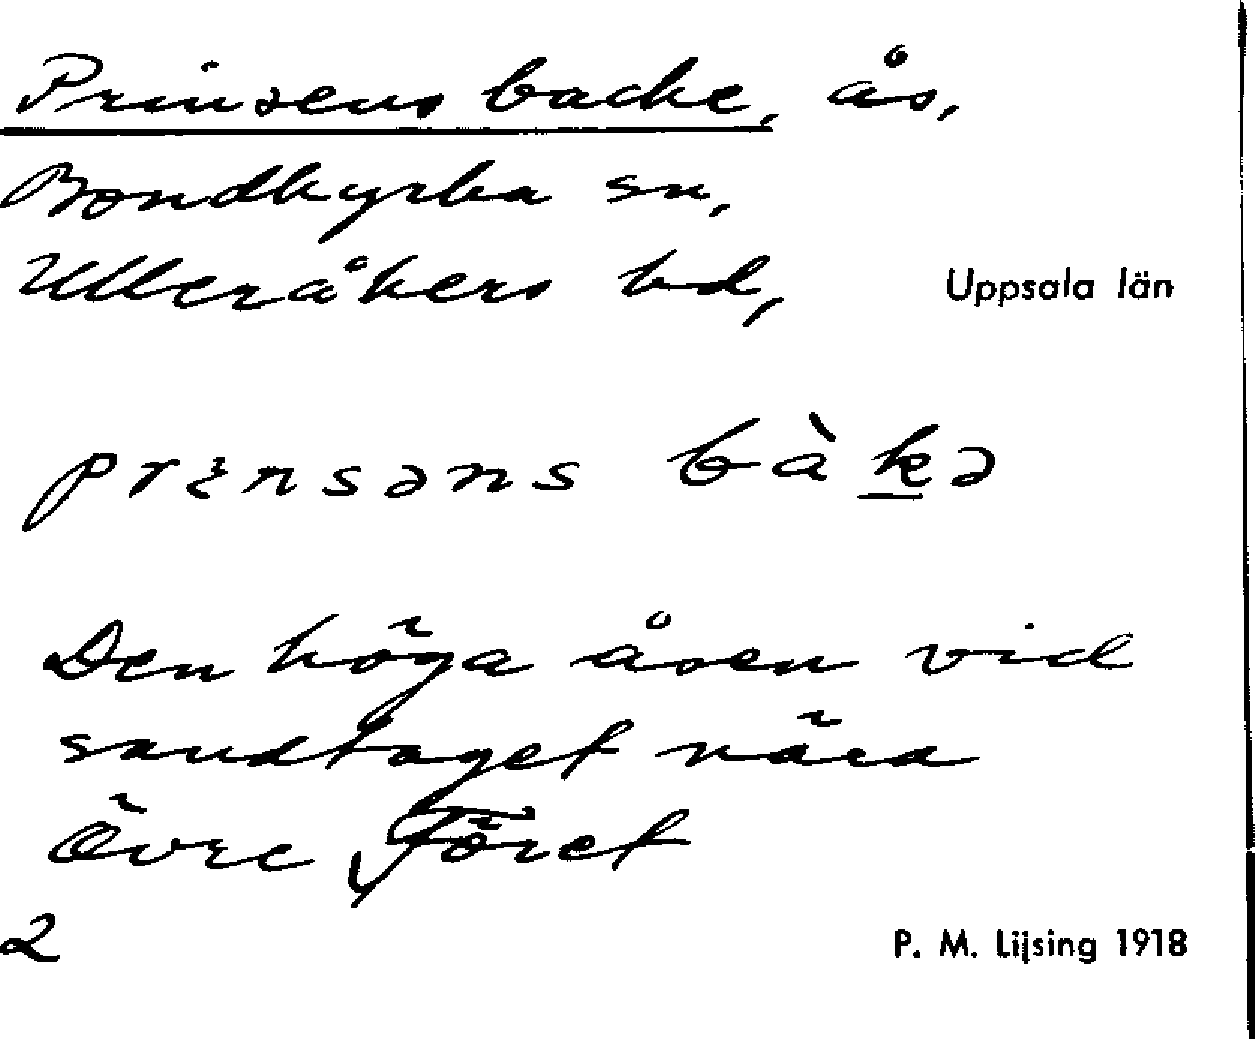 Prinsens backe, ås,
Bondkyrka sn,
Ulleråkers hd, Uppsala län
prɪnsəns bàkə
Den höga åsen vid
sandtaget nära
Övre Föret
2 P. M. Lijsing 1918